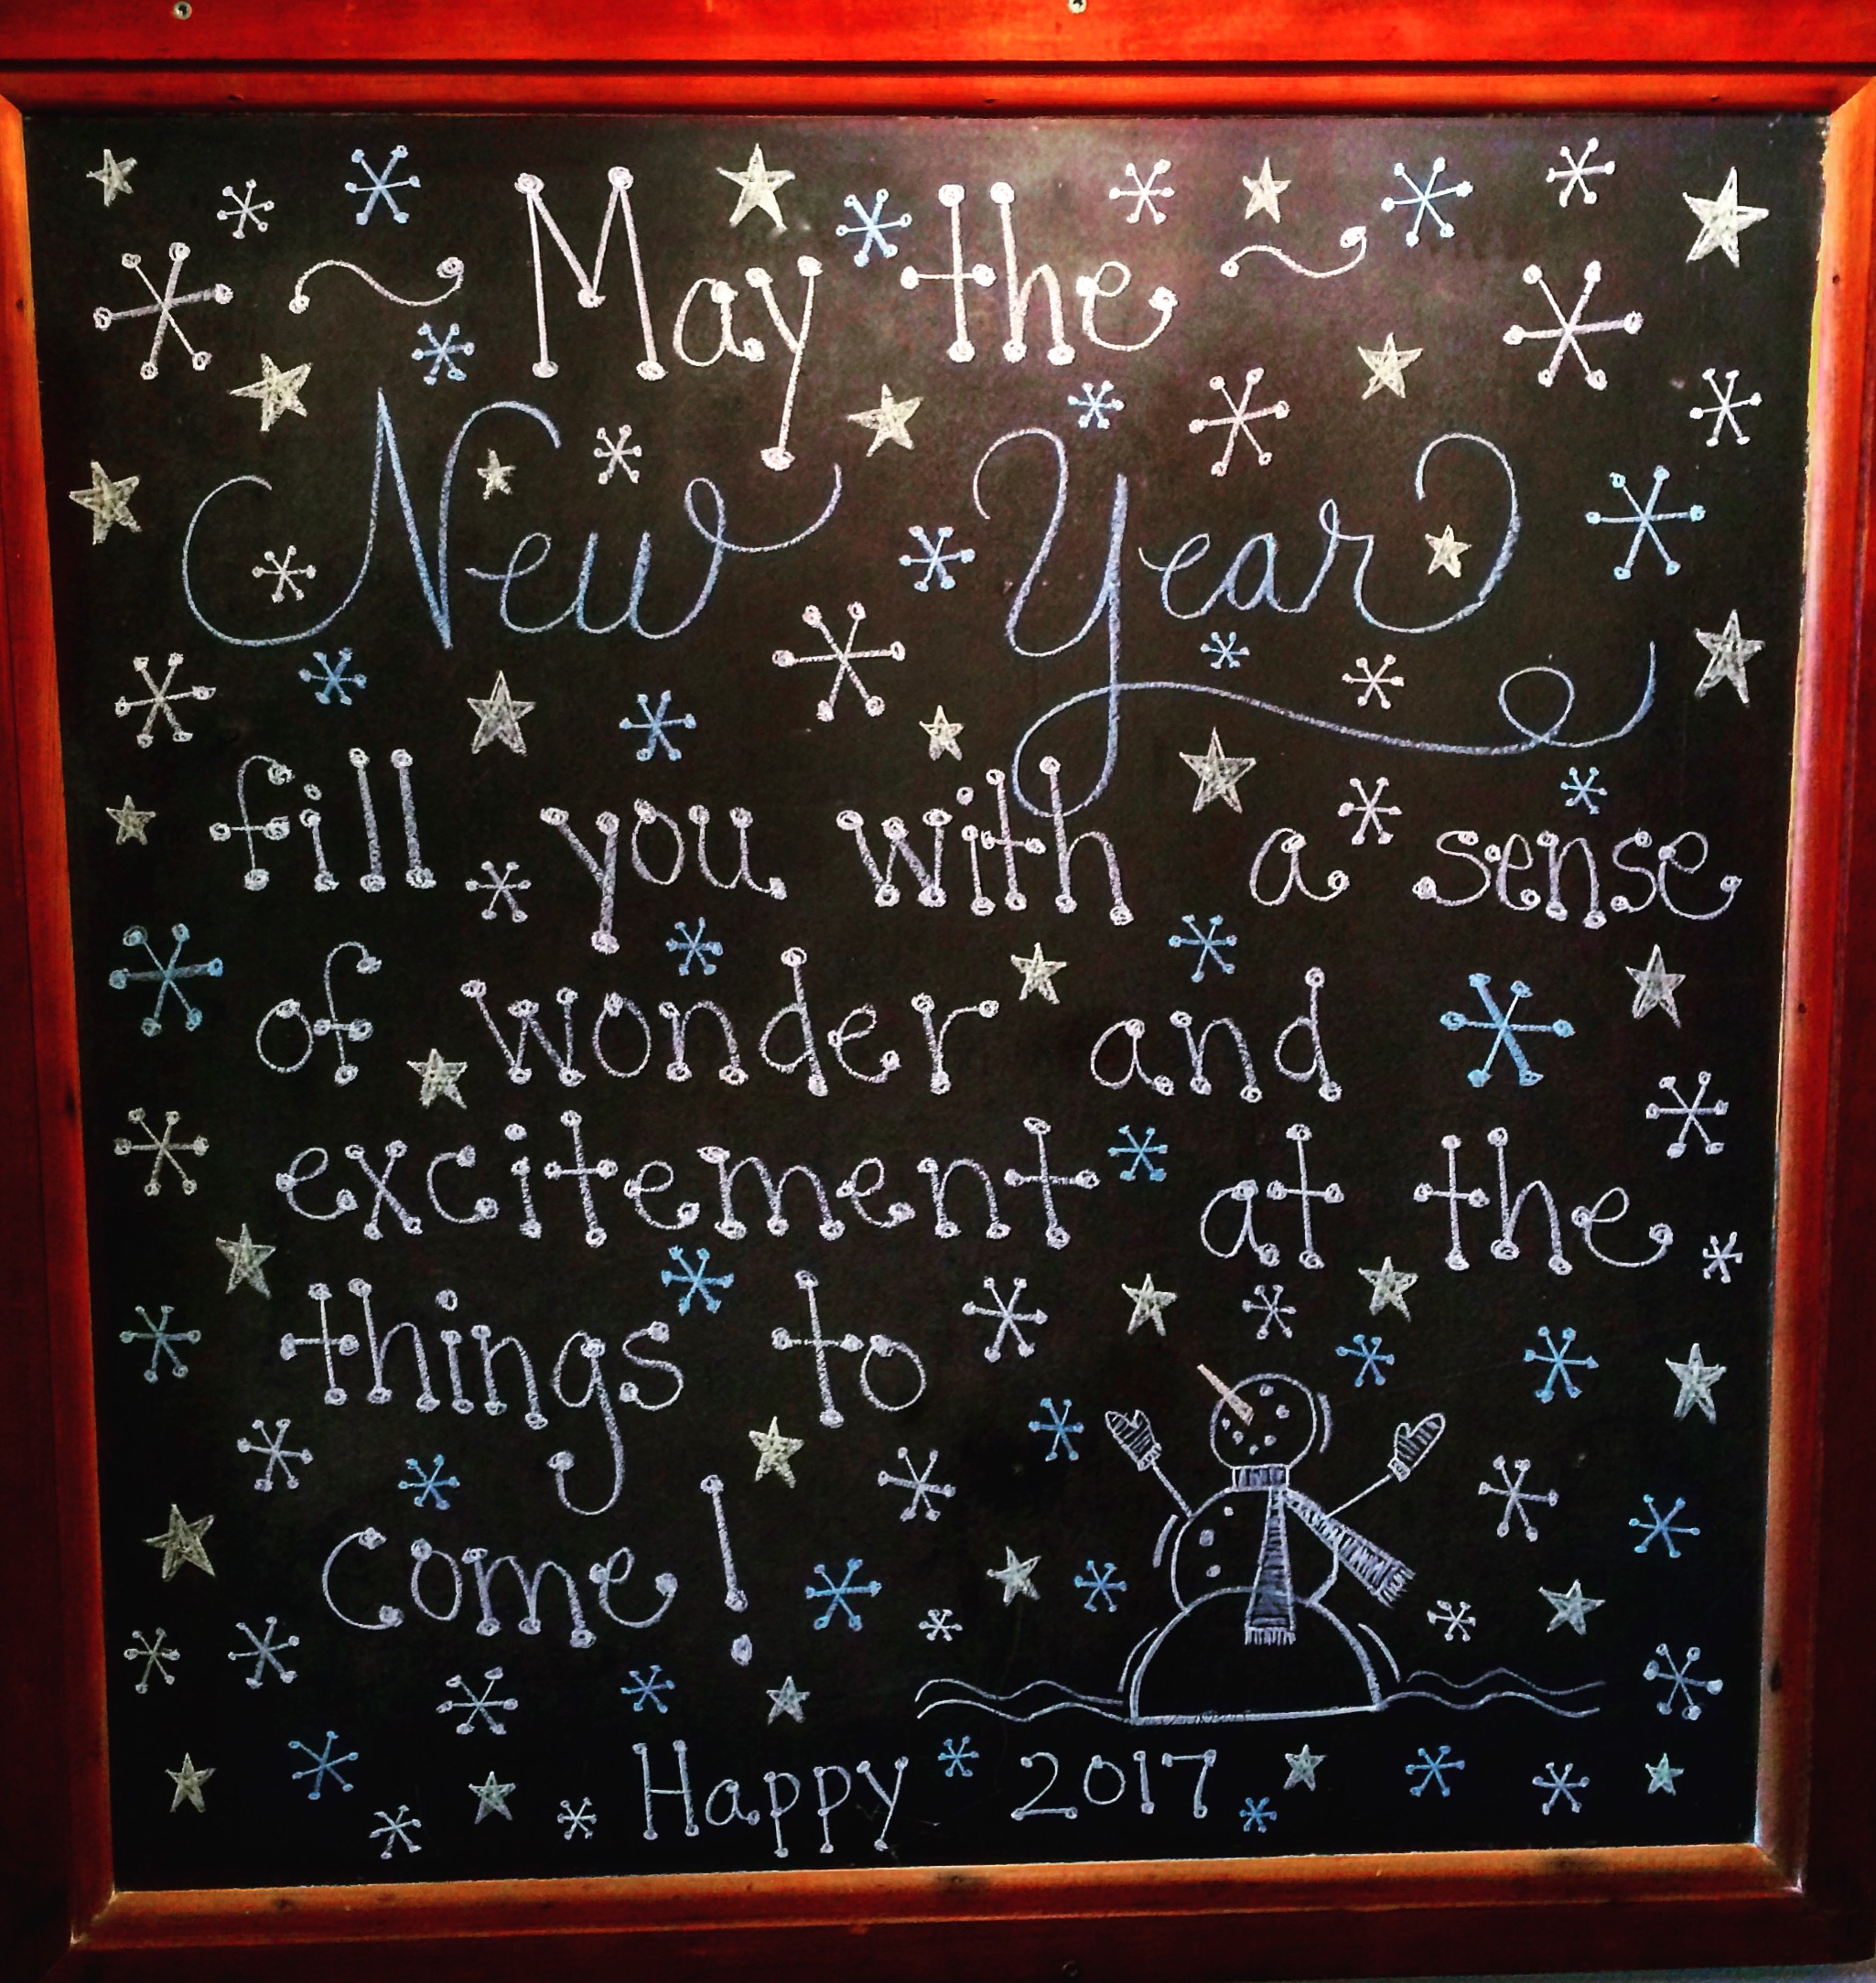 May the
New Year
fill you with a sense
of wonder and
excitement at the
things to
come!
Happy 2017